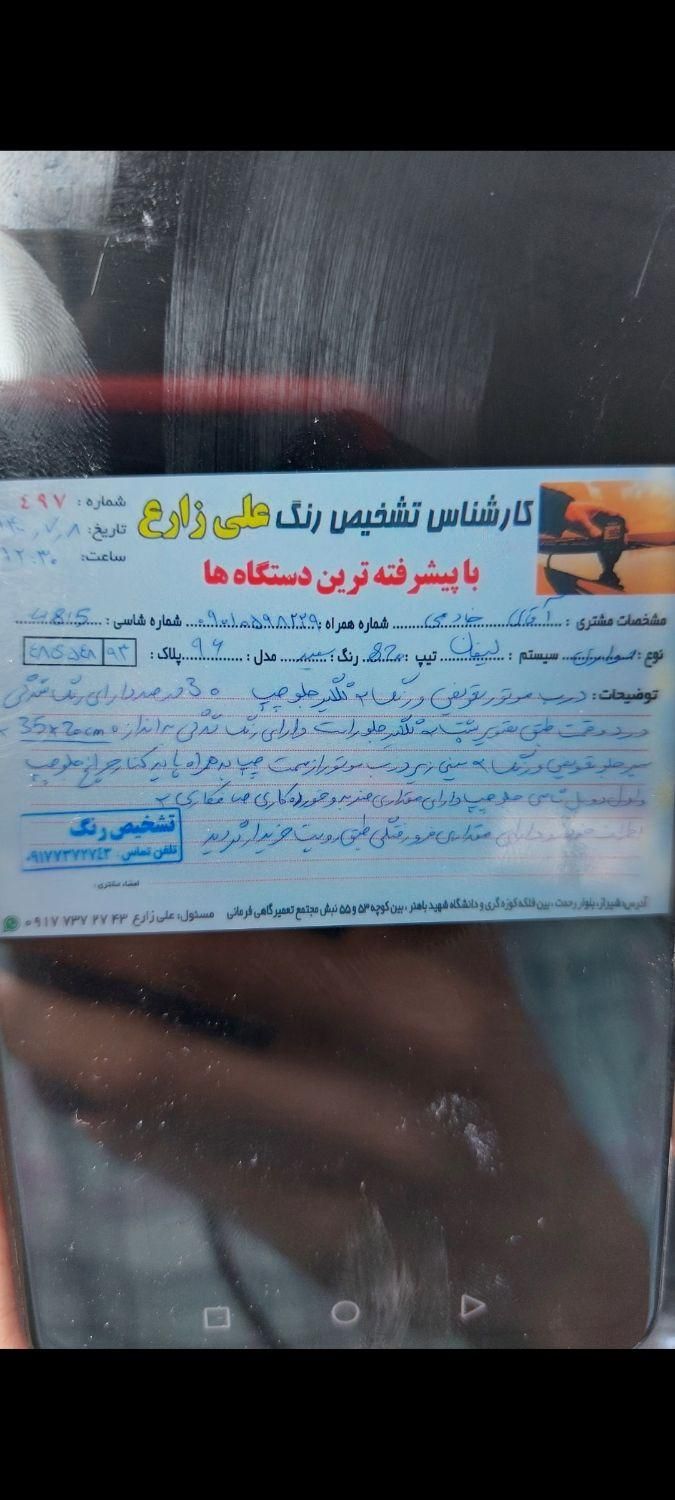 کارشناس تشخیص رنگ علی زارع
شماره : ٤٩٧
با پیشرفته ترین دستگاه ها
تاریخ: ۷/۸
ساعت: ۱۲:۳۰
مشخصات مشتری : آقای خادمی شماره همراه : ۰۹۰۱۰۵۹۸۲۲۹ شماره شاسی :
نوع : سواری سیستم : لیفان تیپ : 820 رنگ : سفید مدل : ۹۶ پلاک : ۹۳
توضیحات : درب موتور تعویض و رنگ * گلگیر جلو چپ 30 درصد دارای رنگ شدگی
گلگیر جلو راست دارای رنگ شدگی به اندازه 35x20cm
سپر جلو تعویض و رنگ * سینی زیر درب موتور از سمت چپ به همراه پایه کنار چراغ جلو چپ
و اول دوبل شاسی جلو چپ دارای مقداری ضربه و خورده کاری صافکاری *
دارای مقداری فرورفتگی طبق رویت خریدار گردید
تشخیص رنگ
تلفن تماس : ۰۹۱۷۷۳۷۲۷٤۳
امضاء مشتری :
آدرس: شیراز، بلوار رحمت ، بین فلکه کوزه گری و دانشگاه شهید باهنر ، بین کوچه ۵۳ و ۵۵ نبش مجتمع تعمیرگاهی فرمانی مسئول: علی زارع ۰۹۱۷ ۷۳۷ ۲۷ ۴۳